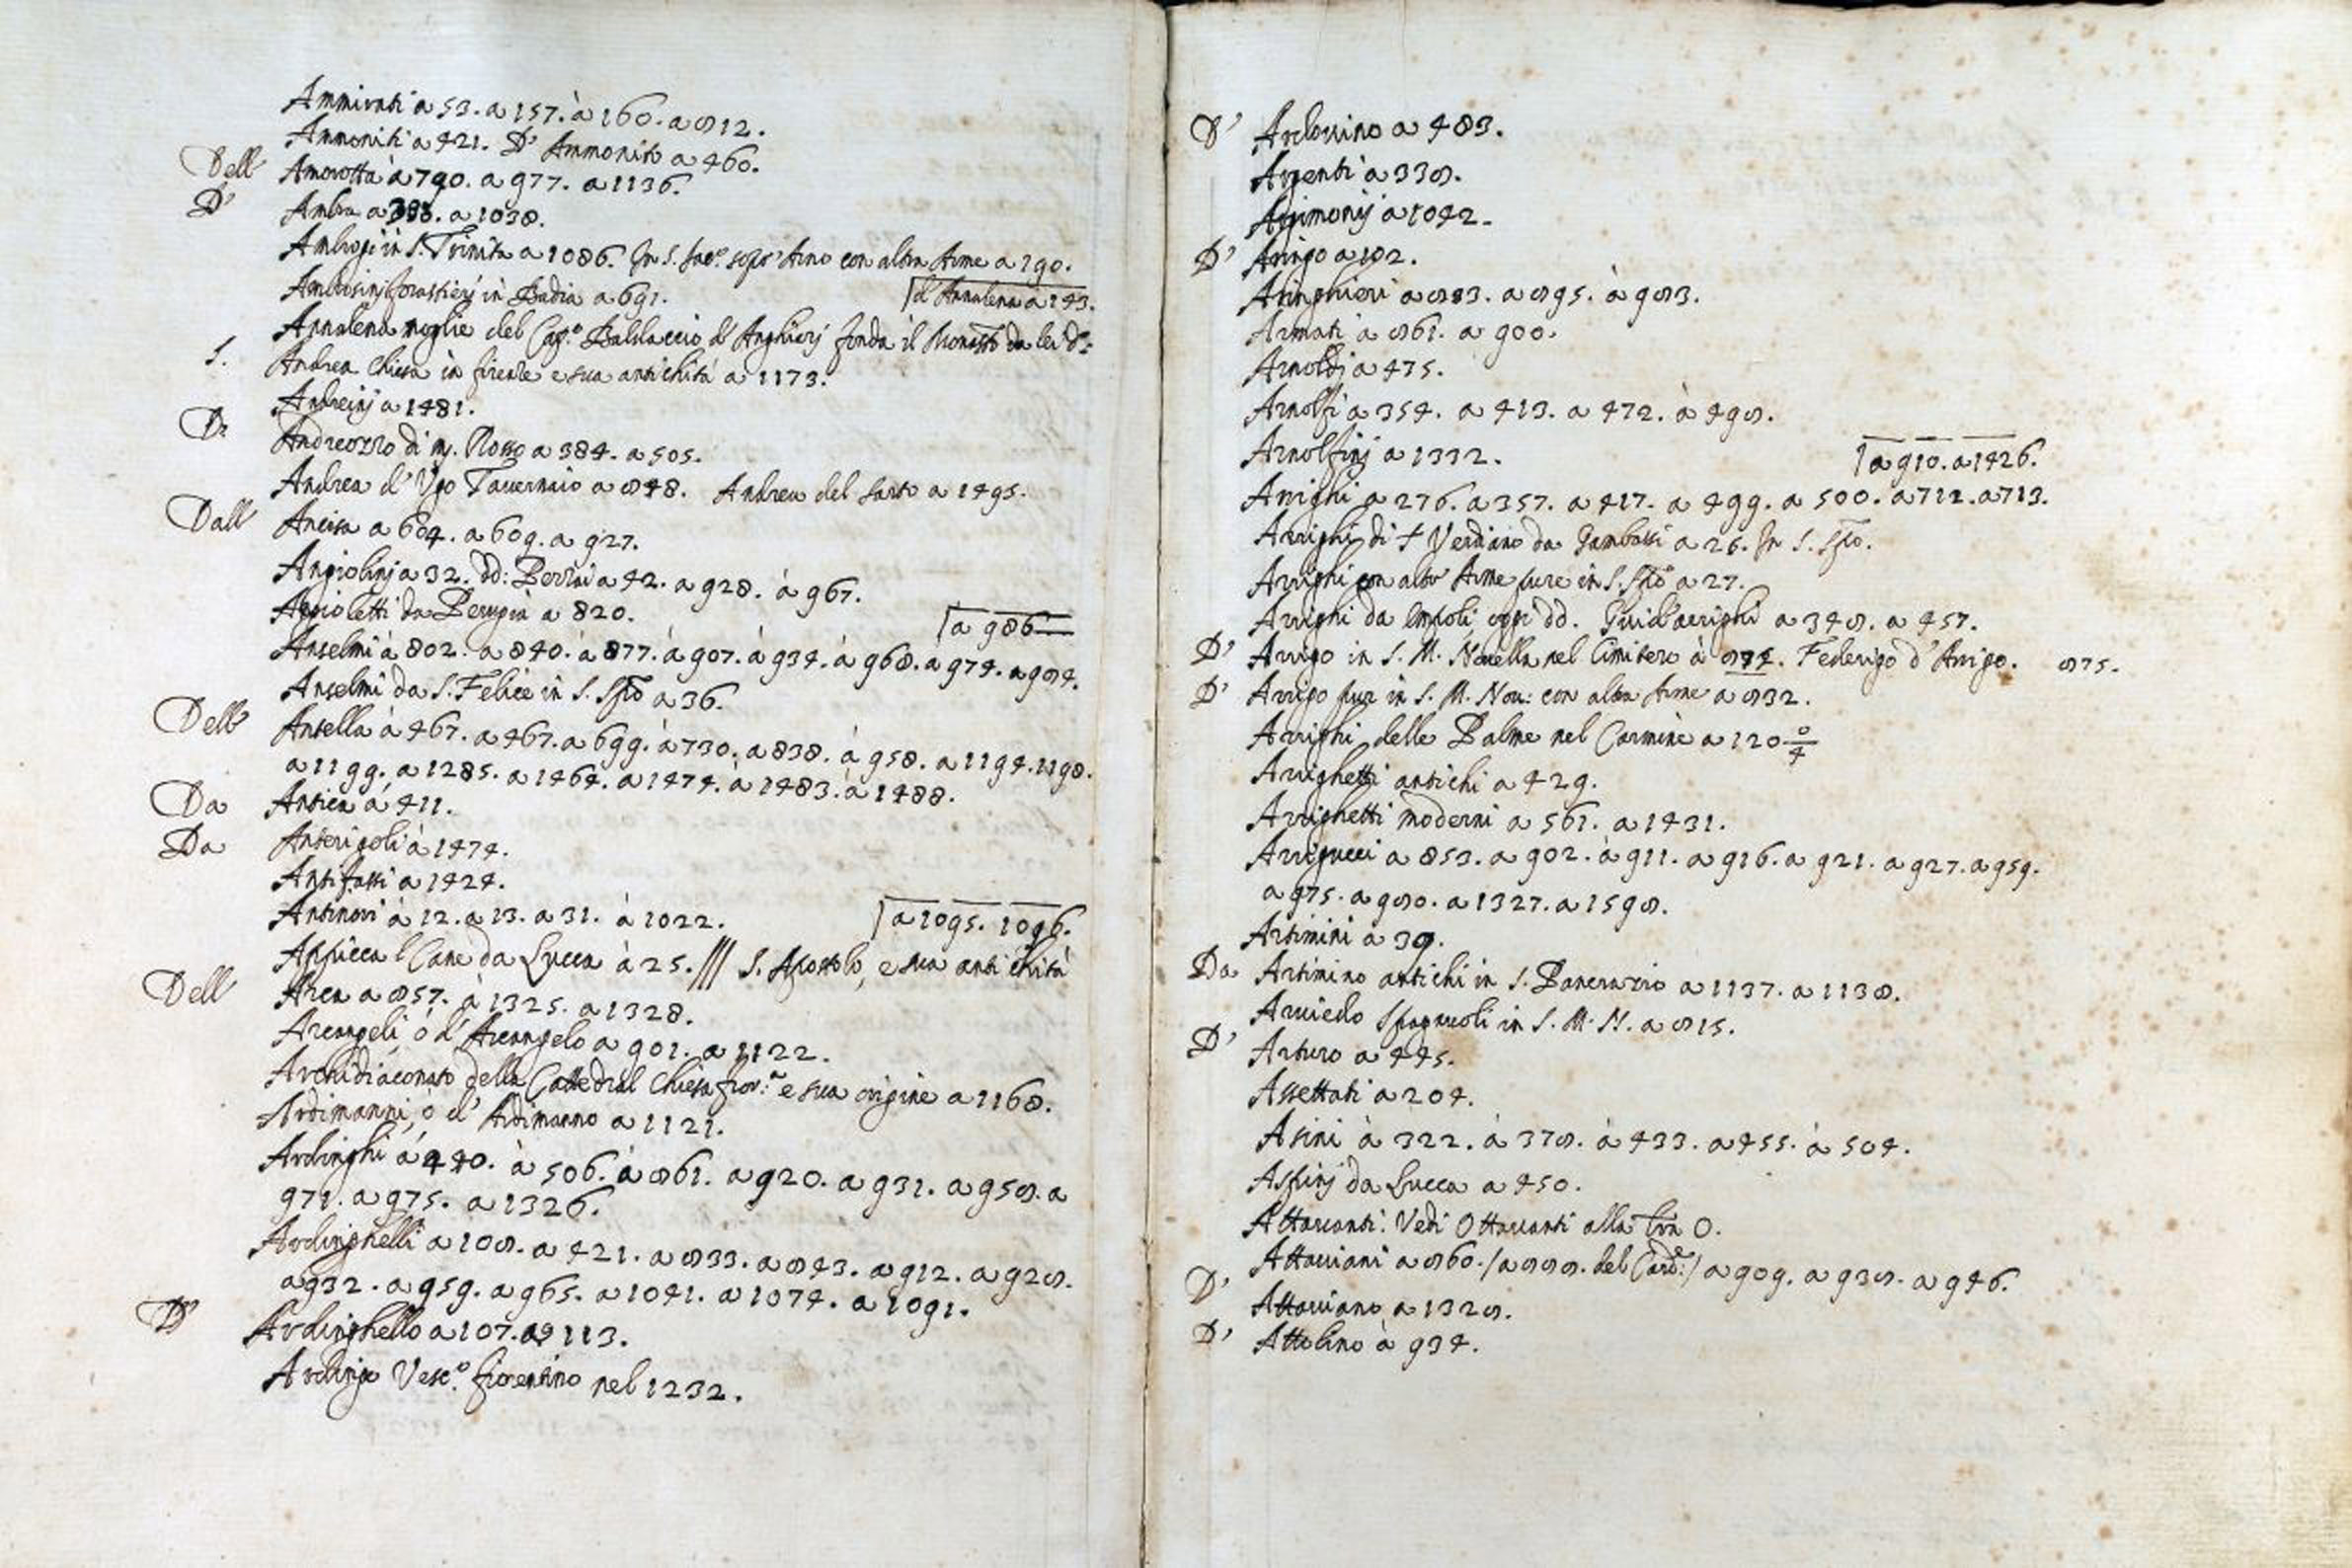 Ammirati a 53. a 157. à 160. a 812.
Ammoniti a 421. D' Ammonito a 460.
Dell' Amorotta à 790. a 977. a 1136.
D' Ambra a a 1038.
Ambrogi in S. Trinita a 1086. In S. Jac.º sopr' Arno con altra Arme a 190.
Ambrosinj forastierj in Badia a 691.
d'Annalena a 143.
Annalena moglie del Cap.º Baldaccio d' Anghierj fonda il Monastº da lei dº:
S. Andrea Chiesa in firenze e sua antichità a 1173.
Andreinj a 1481.
D: Andreozzo di mj. Rosso a 384. a 505.
Andrea d' Ugo Tavernaio a 848. Andrea del Sarto a 1495.
Dall' Ancisa a 604. a 609. a 927.
Angiolinj a 32. dd: Perini a 42. a 928. à 967.
Agnoletti da Perugia à 820.
a 986
Anselmi à 802. à 840. à 877. à 907. à 934. à 968. à 974. a 984.
Anselmi da S. Felice in S. Spto a 36.
Dell' Antella à 467. a 467. a 699. à 730. a 838. à 958. a 1194. 1198.
a 1199. a 1285. a 1464. a 1474. à 1483. à 1488.
Da Antica à 411.
Da Anterigoli à 1474.
Antifassi a 1424.
Antinori à 12. a 13. a 31. à 1022.
a 1095. 1096.
Appicca l Cane da Lucca à 25. /// S. Apostolo, e sua antichità
Dell' Arca a 857. à 1325. a 1328.
Arcangeli, ó d' Arcangelo a 901. a 1122.
Archidiaconato della Cattedral Chiesa fior:ª e sua origine a 1168.
Ardimanni, ó d' Ardimanno a 1121.
Ardinghi á 440. à 506. à 861. a 920. a 931. a 958. a
971. a 975. a 1326.
Ardinghelli a 108. a 421. a 833. a 843. a 912. a 928.
a 932. a 959. a 965. a 1041. a 1074. a 1091.
D' Ardinghello a 107. a 113.
Ardingo Vesc.º fiorentino nel 1232.
D' Ardovino a 483.
Argenti à 338.
Arimonij a 1042.
D' Aringo a 102.
Aringhieri a 883. a 895. à 983.
Armati a 861. a 900.
Arnoldj a 475.
Arnolfi a 354. a 413. a 472. à 498.
Arnolfinj a 1332.
a 910. a 1426.
Arrighi a 276. a 357. a 417. a 499. a 500. a 712. a 713.
Arrighi di S Verdiano da Gambassi a 26. In S. Spto.
Arrighi con altr' Arme pure in S. Spto a 27.
Arrighi da Empoli oggi dd. Guid'arrighi a 348. a 457.
D' Arrigo in S. M. Novella nel Cimitero à 874. Federigo d'Arrigo. 875.
D' Arrigo pur in S. M. Nov: con altra Arme a 832.
Arrighi delle Palme nel Carmine a 120 0/4
Arrighetti antichi a 429.
Arrighetti moderni a 561. a 1431.
Arrigucci a 853. a 902. à 911. a 916. a 921. a 927. a 959.
a 975. a 980. a 1327. a 1598.
Artimini à 39.
Da Artimino antichi in S. Pancrazio a 1137. a 1138.
Arviedo Spagnuoli in S. M. N. a 815.
D' Arturo a 445.
Assettati a 204.
Asini à 322. à 378. à 433. a 455. à 504.
Aspinj da Lucca a 450.
Attavanti: Vedi Ottavanti alla lra O.
Attaviani a 860. / a 888. del Card:e / a 909. a 938. a 946.
D' Attaviano a 1328.
D' Attolino à 934.